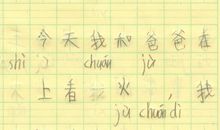 今天我和爸爸在
shì jù chuán jù
上看 火 , 我
jù chuán di